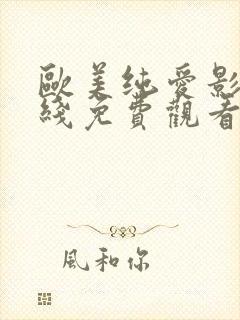 歐美纯愛影
綫免費觀看
風和你